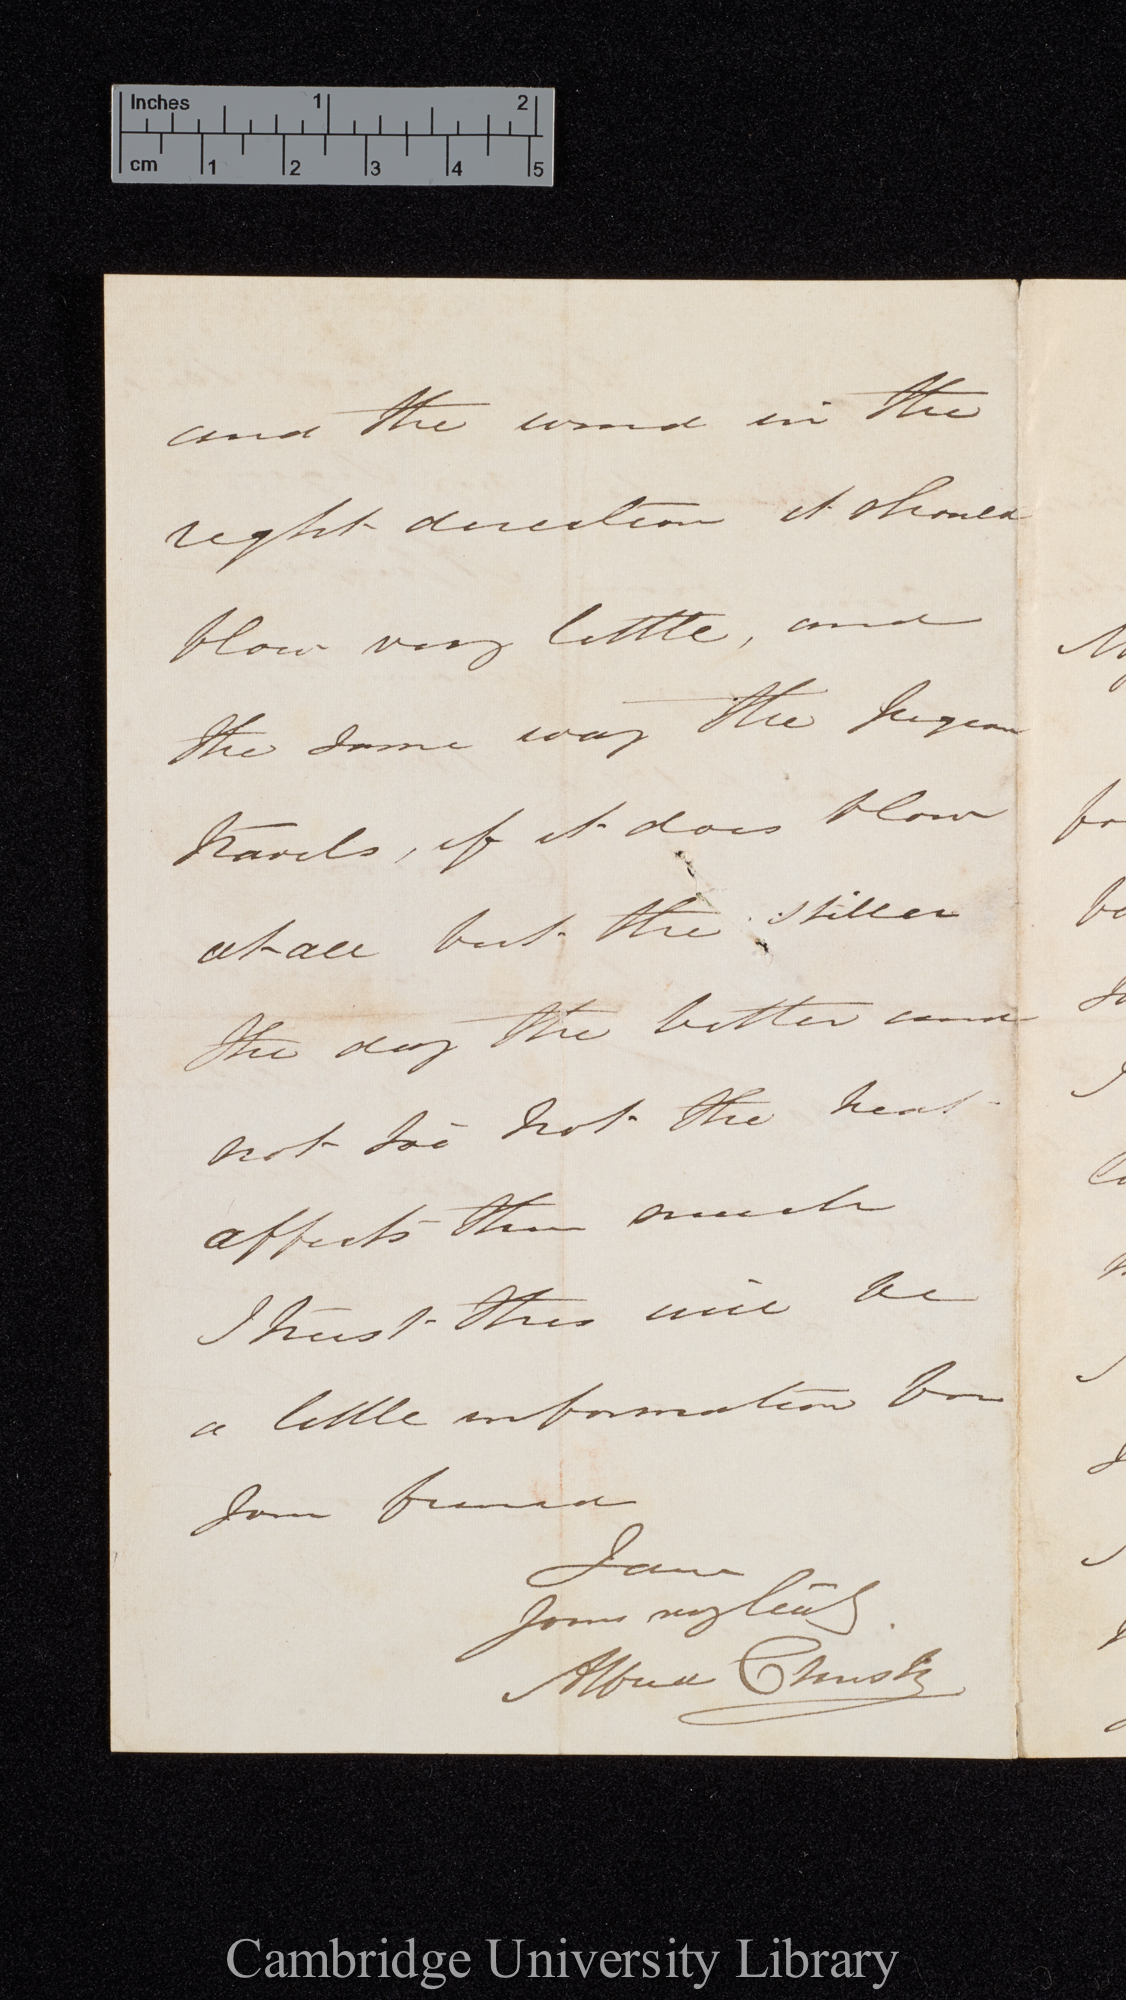 Inches 1 2
cm 1 2 3 4 5
and the wind in the
right direction it should
blow very little, and
the same way the Pigeon
travels, if it does blow
at all but the stiller
the day the better and
not too hot the heat
affects them much
I trust this will be
a little information for
your friend
I am
Yours very truly
Alfred Christy
Cambridge University Library